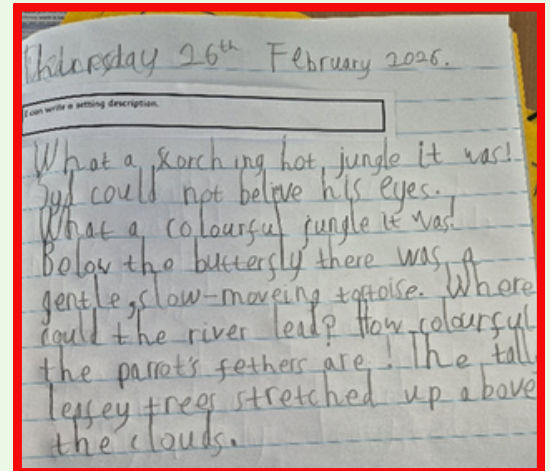 Thursday 26th February 2026.
I can write a setting description.
What a skorching hot jungle it was!
Syd could not belive his eyes.
What a colourful jungle it was!
Below the butterfly there was a
gentle, slow-moveing tortoise. Where
could the river lead? How colourful
the parrot's fethers are! The tall
leafey trees stretched up above
the clouds.